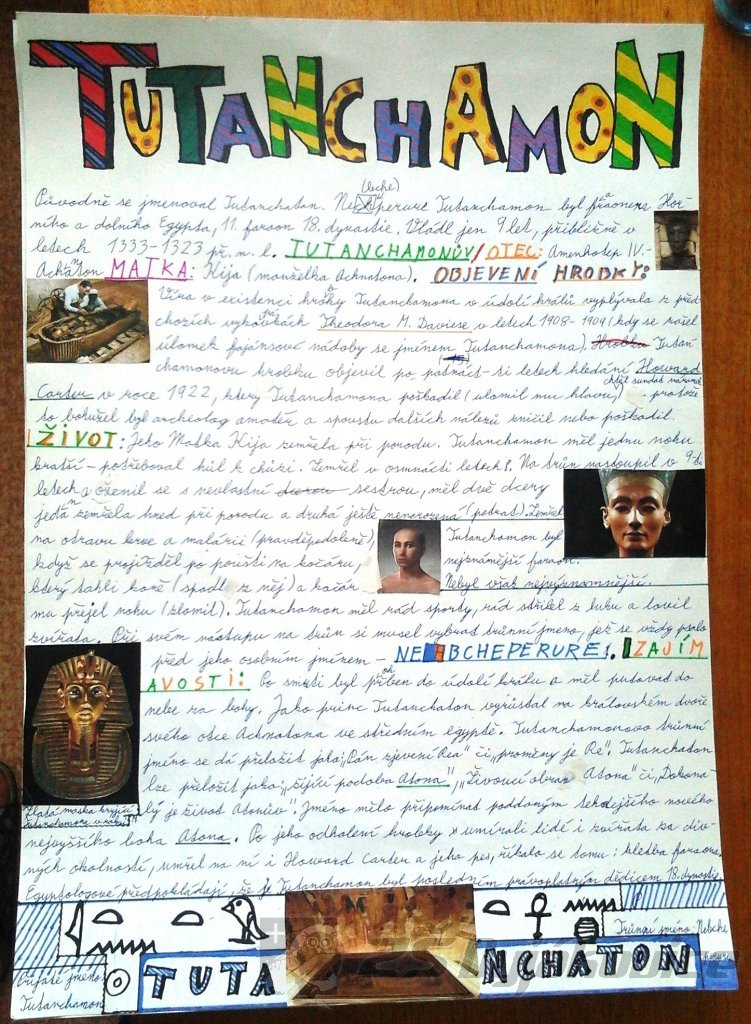 TUTANCHAMON
(bche)
Původně se jmenoval Tutanchaton. Ne perure Tutanchamon byl faraonem Hor-
ního a dolního Egypta, 11. faraon 18. dynastie. Vládl jen 9 let, přibližně v
letech 1333-1323 př. n. l. TUTANCHAMONŮV/OTEC: Amenhotep IV.-
Achnaton MATKA: Kija (manželka Achnatona). OBJEVENÍ HROBKY:
Víra v existenci hrobky Tutanchamona v údolí králů vyplývala z před-
chozích vykopávkách Theodora M. Daviese v letech 1908-1909 (kdy se našel
úlomek fajánsové nádoby se jménem Tutanchamona). Hrobka Tutan-
chamonovu hrobku objevil po patnácti letech hledání Howard
Carter v roce 1922, který Tutanchamona poškodil (ulomil mu hlavu) chtěl sundat náramek protože
to bohužel byl archeolog amatér a spoustu dalších nálezů zničil nebo poškodil.
ŽIVOT: Jeho Matka Kija zemřela při porodu. Tutanchamon měl jednu nohu
kratší - potřeboval hůl k chůzi. Zemřel v osmnácti letech. Na trůn nastoupil v 9-ti
letech a oženil se s nevlastní dcerou sestrou, měl dvě dcery
jedna zemřela hned při porodu a druhá ještě nenarozená (potrat). Zemřel
na otravu krve a malárii (pravděpodobně), Tutanchamon byl
když se projížděl po poušti na kočáru, nejznámější faraon.
který táhli koně (spadl z něj) a kočár Nebyl však nejvýznamnější.
mu přejel nohu (zlomil). Tutanchamon měl rád sporty, rád střílel z luku a lovil
zvířata. Při svém nástupu na trůn si musel vybrat trůnní jméno, jež se vždy psalo
před jeho osobním jménem - NEBCHEPERURE. ZAJÍM
AVOSTI: Po smrti byl pohřben do údolí králů a měl putovat do
nebe za bohy. Jako princ Tutanchaton vyrůstal na královském dvoře
svého otce Achnatona ve středním egyptě. Tutanchamonovo trůnní
jméno se dá přeložit jako: „Pán zjevení Rea" či „proměny je Re". Tutanchaton
lze přeložit jako „žijící podoba Atona", „Živoucí obraz Atona" či „Dokona-
lý je život Atonův". Jméno mělo připomínat poddaným tehdejšího nového
Zlatá maska kryjící
nejvyššího boha Atona. Po jeho odhalení hrobky umírali lidé i zvířata za div-
ných okolností, umřel na ni i Howard Carter a jeho pes, říkalo se tomu: kletba faraona.
Egyptologové předpokládají, že je Tutanchamon byl posledním právoplatným dědicem 18. dynastie
Trůnní jméno: Nebche
perure
Přijaté jméno
Tutanchamon
TUTA NCHATON